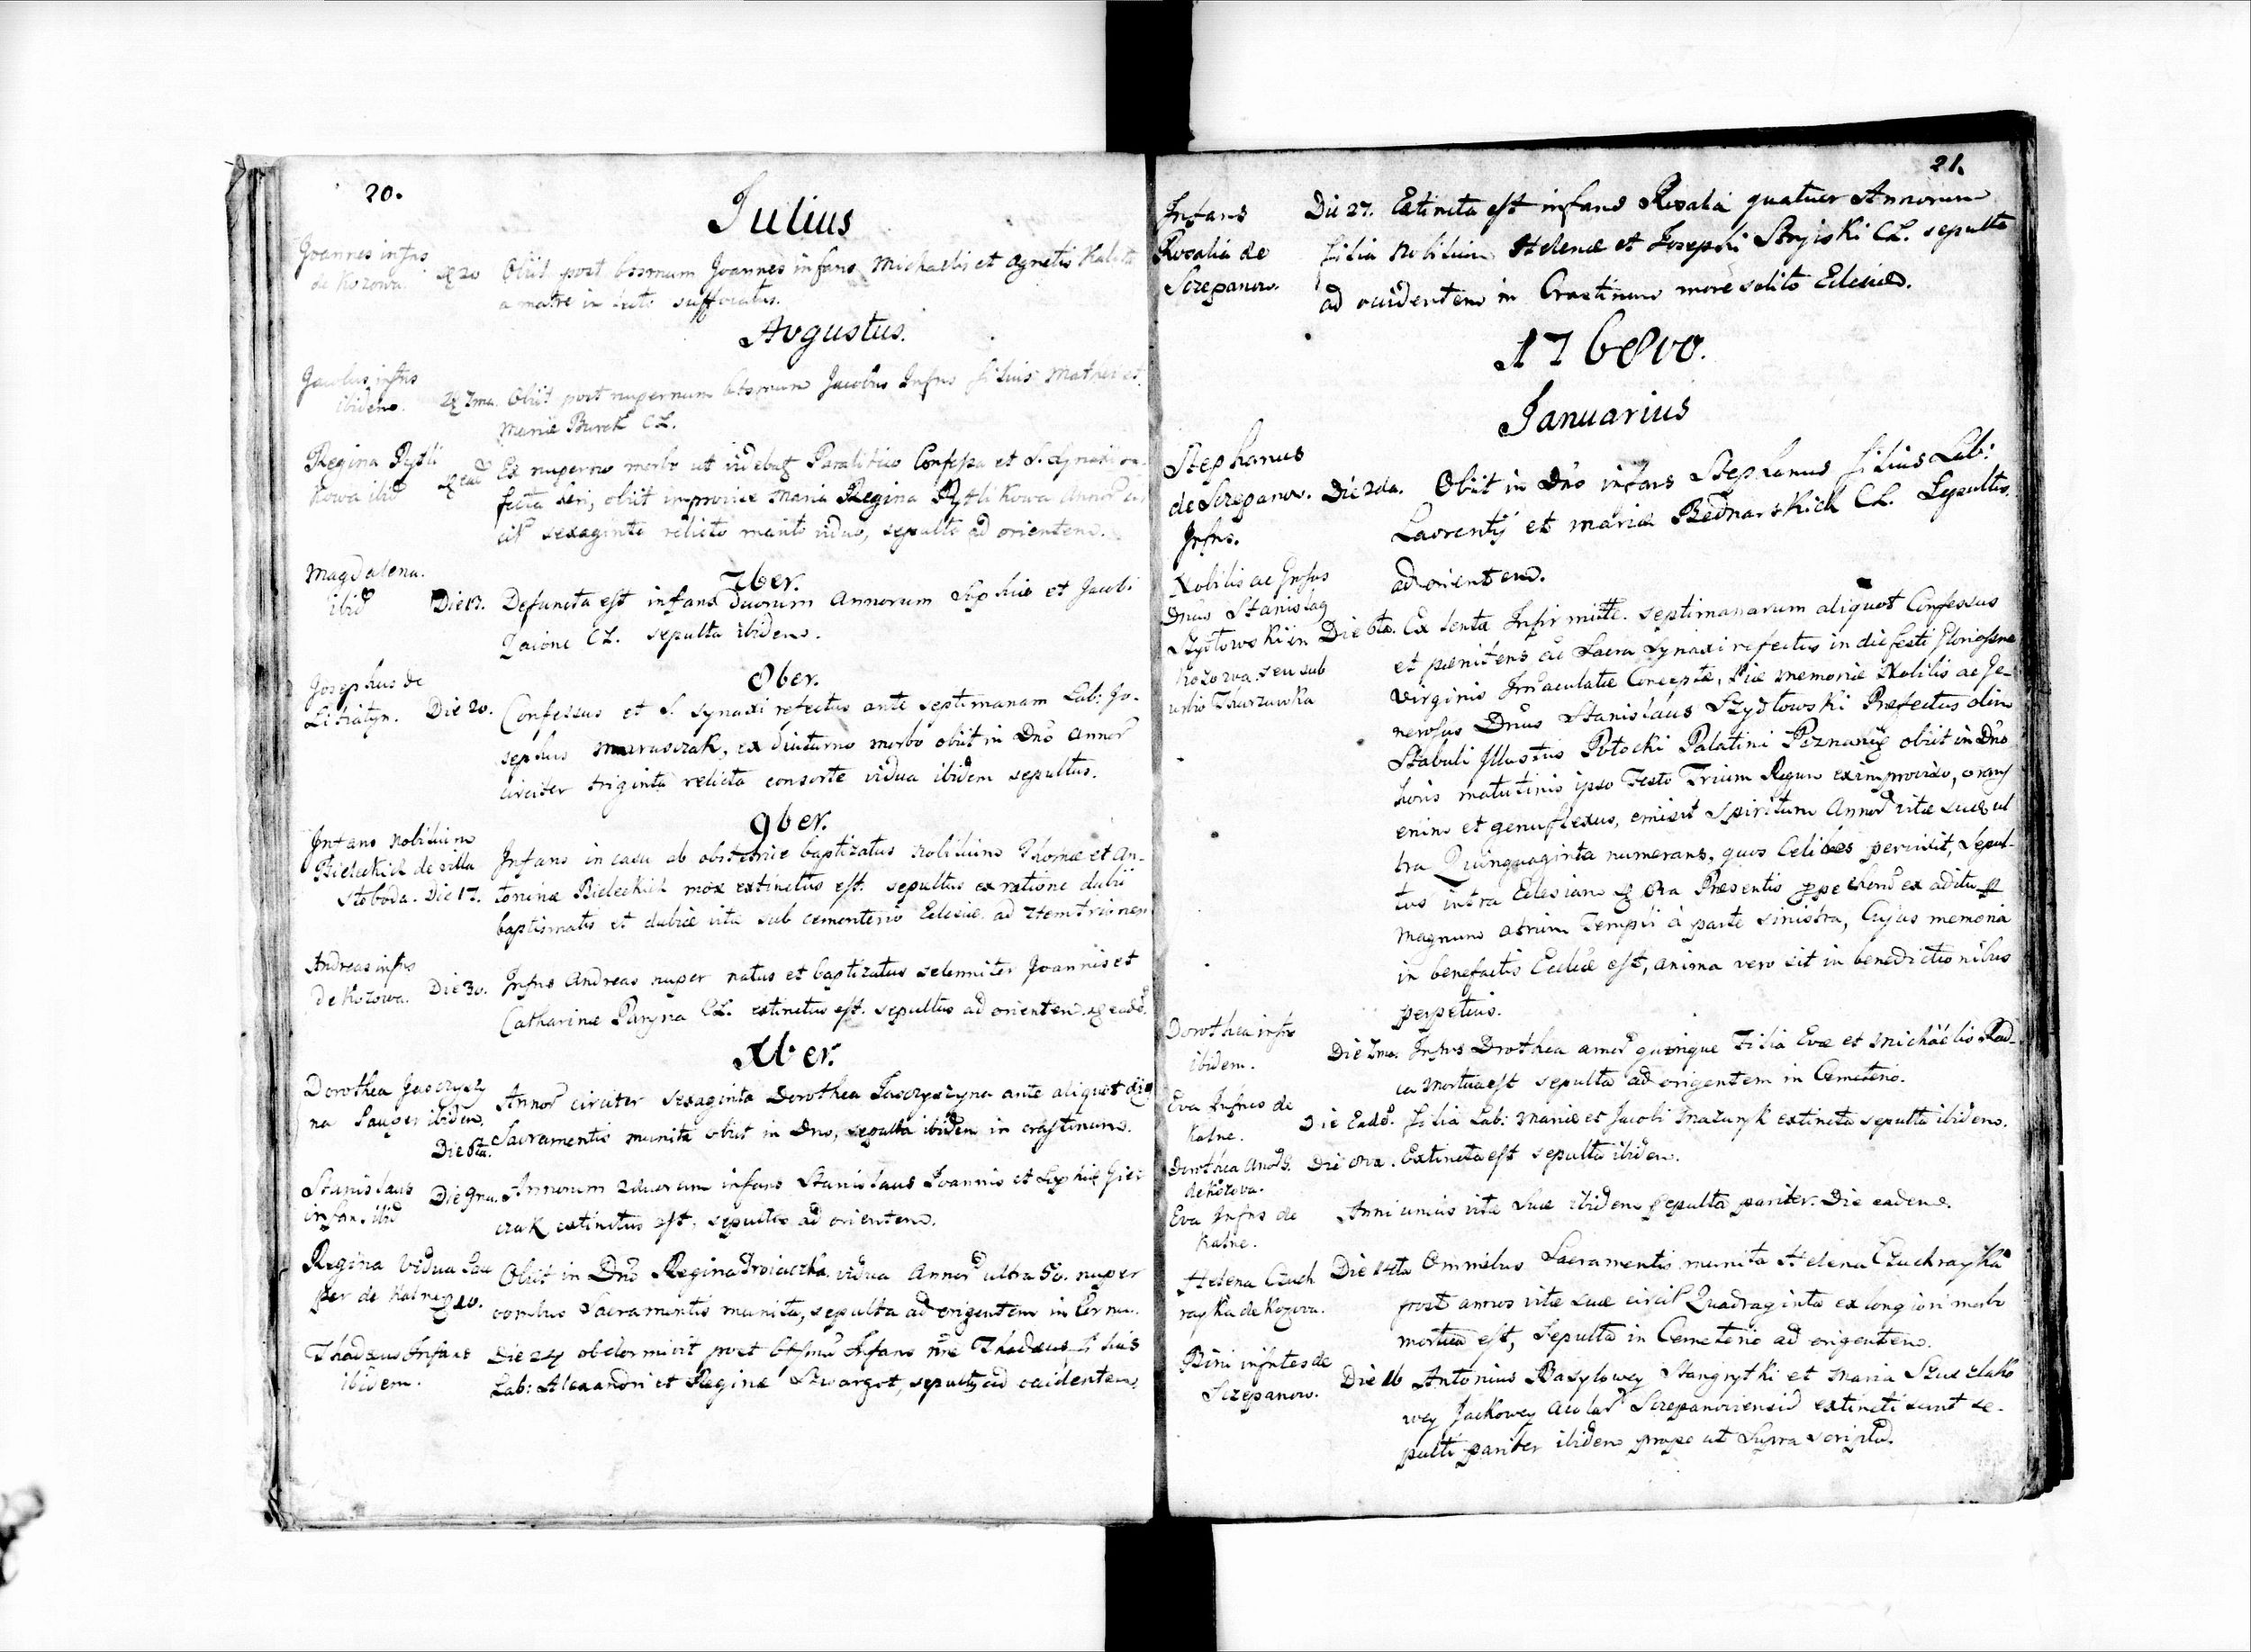 20.
Julius
Joannes infns
de Kozowa. 20 Obiit post bssmum Joannes infans Michaelis et Agnetis
a matre in lecto suffocatus.
Avgustus.
Jacobus infns
ibidem. 7ma. Obiit post nupernum btssmum Jacobus Infns filius Mathei et
Mariæ Burek CL.
Regina Pytli
kowa ibid Ex nuperno morbo ut videbat Paralitico Confessa et S. Synaxi re-
fecta heri, obiit improvise Maria Regina Pytlikowa Annor cir
cit sexaginta relicto marito viduo, sepulta ad orientem.
7ber.
Magdalena.
ibid Die 13. Defuncta est infans duorum Annorum Sophiæ et Jacobi
Zaione CL. sepulta ibidem.
8ber.
Josephus de
Litiatyn. Die 20. Confessus et S. Synaxi refectus ante septimanam Lab: Jo-
sephus Marusczak, ex diuturno morbo obiit in Dno Annor
circiter triginta relicta consorte vidua ibidem sepultus.
9ber.
Infans nobilium
Bieleckich de villa
Słoboda. Die 17. Infans in casu ab obstetrice baptizatus nobilium Thomæ et An-
toninæ Bieleckich mox extinctus est. sepultus ex ratione dubii
baptismatis et dubiæ vitæ sub cementerio Eclesiæ ad 7temtrionem
Andreas infns
de Kozowa. Die 30. Infns Andreas nuper natus et baptizatus solemniter Joannis et
Catharinæ Paryna CL. extinctus est. sepultus ad orientem. eade.
Xber.
Dorothea Jasczyszy
na Pauper ibidem. Annor circiter sexaginta Dorothea Jasczyszyna ante aliquot dies
Die 6ta. Sacramentis munita obiit in Dno, sepulta ibidem in crastinum.
Stanislaus
infan. ibid Die 9na. Annorum 2duorum infans Stanislaus Joannis et Sophiæ Gier
czak extinctus est, sepultus ad orientem.
Regina vidua Pau
per de Kalne 10. Obiit in Dno Regina Troiaczka vidua Annor ultra 50. nuper
omnibus Sacramentis munita, sepulta ad origentem in
Thadæus Infans
ibidem. Die 24 obdormivit post btssmu Infans nne Thadæus filius
Lab: Alexandri et Reginæ Swargot, sepultq ad occidentem.
21.
Infans
Rosalia de
Sczepanow. Die 27. Extincta est infans Rosalia quatuor Annorum
filia Nobilium Helenæ et Josephi Stryiski CL. sepulta
ad occidentem in Crastinum more solito Eclesiæ.
1768vo.
Januarius
Stephanus
de Sczepanow.
Infns. Die 2da. Obiit in Dno infans Stephanus filius Lab:
Laorentij et Mariæ Bednarskich CL. Sepultus
ad orientem.
Nobilis ac Grosus
Dnus Stanislaq
Szydłowski in
Kozowa. seu sub
urbio Thurzówka
Die 6ta. Ex lenta Infirmitte. septimanarum aliquot Confessus
et pænitens ac Sacra Synaxi refectus in die festi Gloriossmæ
Virginis Immaculatæ Conceptæ, Piæ memoriæ Nobilis ac Ge-
nerosus Dnus Stanislaus Szydłowski Præfectus olim
Stabuli Illustris Potocki Palatini Poznaniæ obiit in Dno
horis matutinis ipso Festo Trium Regum ex improviso, orans
enim et genuflexus, emisit Spiritum Annor vitæ suæ ul
tra Quinquaginta numerans, quos Celibes pervixit, Sepul-
tus intra Eclesiam Præsentis ppe chorum ex aditu p
magnum atrium Templi à parte sinistra, Cujus memoria
in benefactis Ecclæ est, anima vero sit in benedictionibus
perpetuis.
Dorothea infns
ibidem. Die 7ma. Infns Drothea annor quinque Filia Evæ et Michaelis Rad-
ca Mortua est sepulta ad origentem in Cemeterio.
Eva Infns de
Kalne. Die Eade. Filia Lab: Mariæ et Jacobi Mazuryk extincta sepulta ibidem.
Dorothea
de Kozova. Die 8va. Extincta est sepulta ibidem.
Eva Infns de
Kalne. Anni unius vitæ suæ ibidem sepulta pariter. Die eadem.
Helena Czuch
rayka de Kozova. Die 14ta Omnibus Sacramentis munita Helena Czuchrayka
post annos vitæ suæ circit Quadraginta ex longiori morbo
mortua est, Sepulta in Cemeterio ad origentem.
Bini infntes de
Sczepanow. Die 16 Antonius Basylowey Stangrytki et Maria
wey Jackowey Sczepanoviensiu extincti sunt se-
pulti pariter ibidem prope ut Supra scripta.